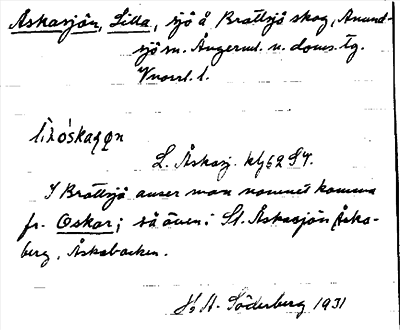 Åskasjön, Lilla, sjö å Brattsjö skog, Anund-
sjö sn. Ångerml. n. doms. tg.
Vnorrl. l.
L. Åskasj. 62 SV.
I Brattsjö anser man namnet komma
fr. Oskar; så även i St. Åskasjön, Åska-
berg, Åskabacken.
H. A. Söderberg 1931